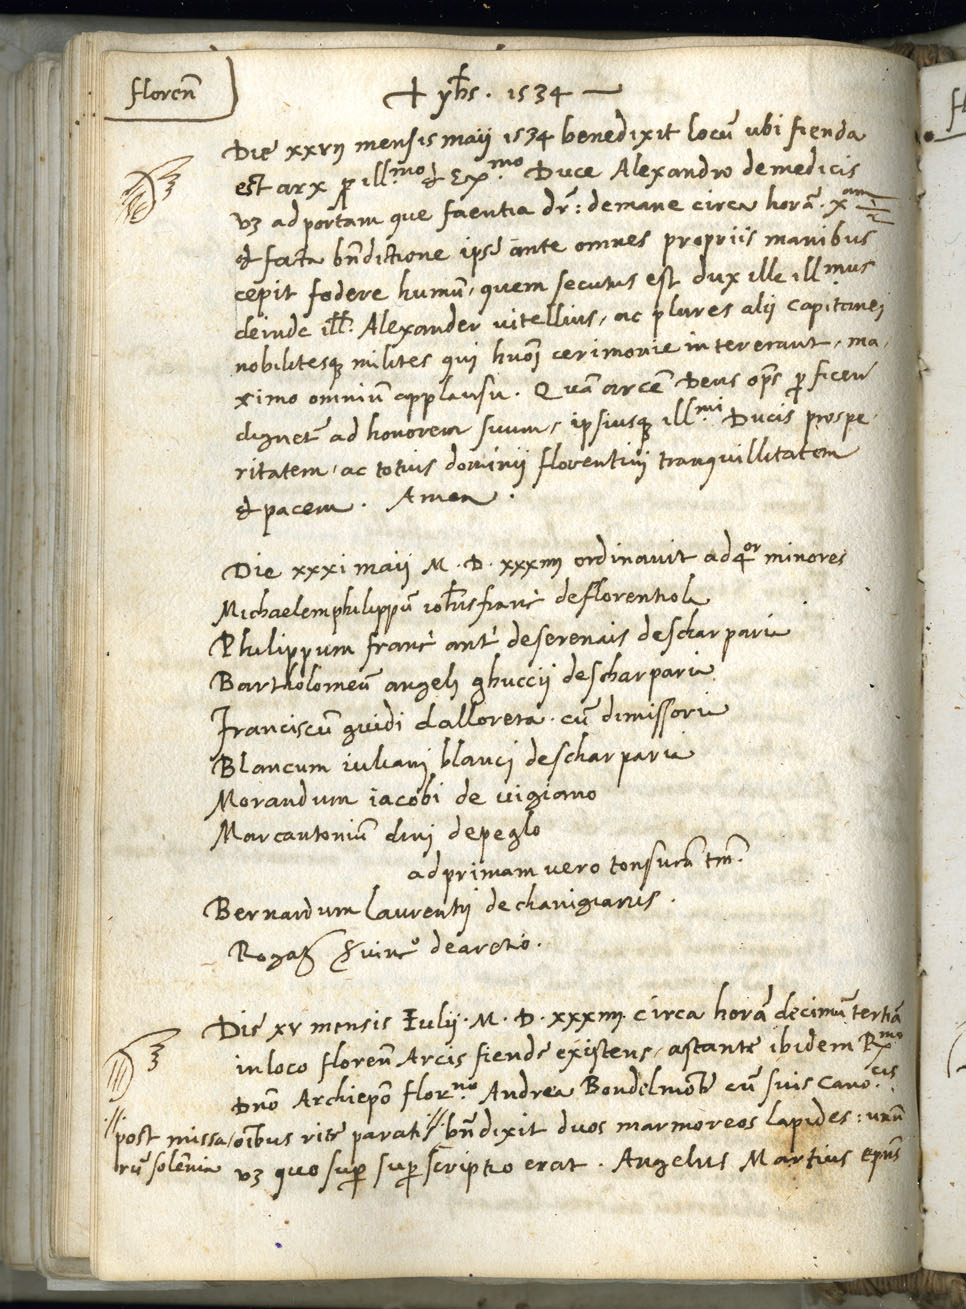 florenͫ
✝ yhs . 1534 —
Die xxvij mensis maij 1534 benedixit locū ubi fienda
est arx p illmo & Exmo Duce Alexandro de medicis
vz ad portam que faentia dr̄ : de mane circa horā . xam
& facta bn̄dictione ipse ante omnes propriis manibus
cepit fodere humū, quem secutus est dux ille illmus
deinde ill. Alexander vitellius, ac plures alij capitanei
nobilitesq milites qui huoi cerimonie intererant, ma,
ximo omniū applausu . Quā arcē Deus ops pficeru
dignet ad honorem suum, ipsiusq illmi Ducis prospe,
ritatem, ac totius dominij florentini tranquillitatem
& pacem . Amen .
Die xxxi maij M . D . xxxiiij ordinavit ad 4or minores
Michaelem philippū iohis franc de florentiola
Philippum franc ant de serenais de scharparia
Bartholomeū angeli ghuccij de scharparia
Franciscū guidi dalloreta . cū dimissoria
Blancum iuliani blanci de scharparia
Morandum iacobi de vigiano
Marcantoniū dini depeglo
ad primam vero tonsurā tm̄ .
Bernardum laurentij de chanigianis .
Rogat S vinco de aretio .
Die xv mensis Iulij . M . D . xxxiiij . circa horā decimā tertiā
in loco florenͫ Arcis fiende existens, astante ibidem Rmo
Dn̄o Archiepō florno Andrea Bondelmōte cū suis canocis
post missa/ oibus rite paratis // bn̄dixit duos marmoreos lapides : unū
rū solēnia vz quo sup sup scriptio erat . Angelus Martius epus